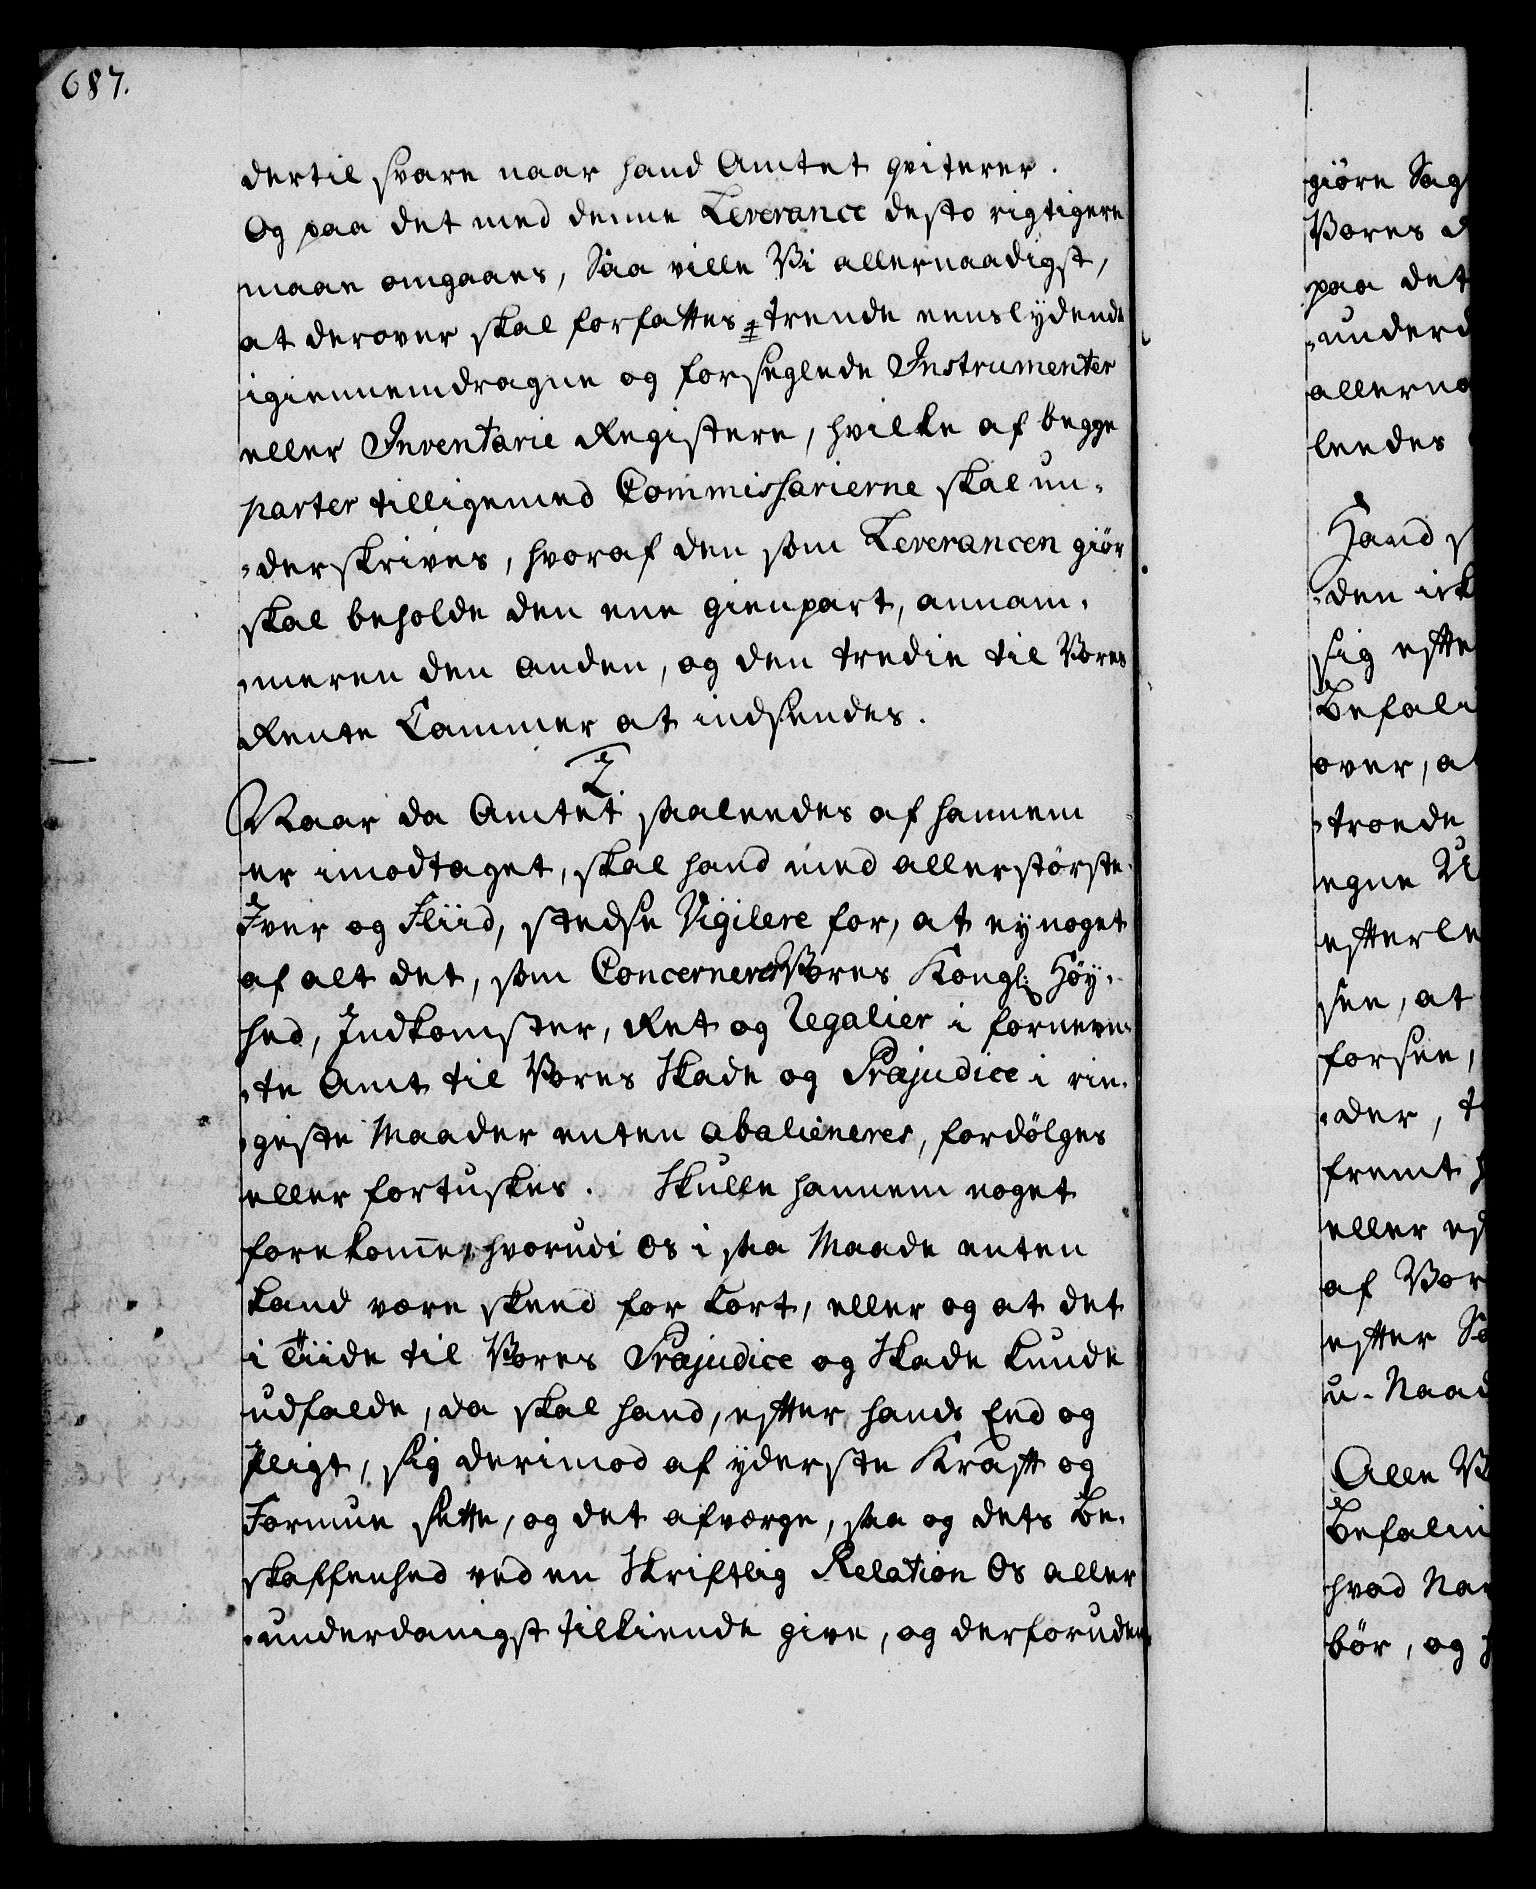 687.
dertil svare naar hand Amtet qviterer.
Og paa det med denne Leverance desto rigtigere
maae omgaaes, Saa ville Vi allernaadigst,
at derover skal forfattes trende eenslydende
igiennemdragne og forseglede Instrumenter
eller Inventarie Registere, hvilke af begge
parter tilligemed Commissarierne skal un-
-derskrives, hvoraf den som Leverancen giør
skal beholde den ene gienpart, annam-
-meren den anden, og den tredie til Vores
Rente Cammer at indsendes.
2.
Naar da Amtet saaleedes af hannem
er imodtaget, skal hand med allerstørste
Iver og Fliid, stedse Vigilere for, at ey noget
af alt det, som Concernerer Vores Kongl: Høy-
hed, Indkomster, Ret og Regalier i forneven-
-te Amt til Vores Skade og Præjudice i rin-
-geste Maader enten abalieneres, fordølges
eller fortuskes. Skulle hannem noget
forekomme, hvorudi Os i saa Maade enten
kand være skeed for kort, eller og at det
i Tiide til Vores Præjudice og Skade kunde
udfalde, da skal hand, efter hands Eed og
Pligt, sig derimod af yderste Krafft og
Formue sette, og det afværge, saa og dets Be-
skaffenhed ved en Skriftlig Relation Os aller
-underdanigst tilkiende give, og derforuden
giøre Sag
Vores
paa det
-underd
allerna
leedes
Hand
-den
sig effte
Befali
over, a
-troede
egne
effterle
see, at
forsee,
-der,
fremt
eller
af Vor
effter
u-Naad
Alle
Befalin
hvad Nav
bør, og